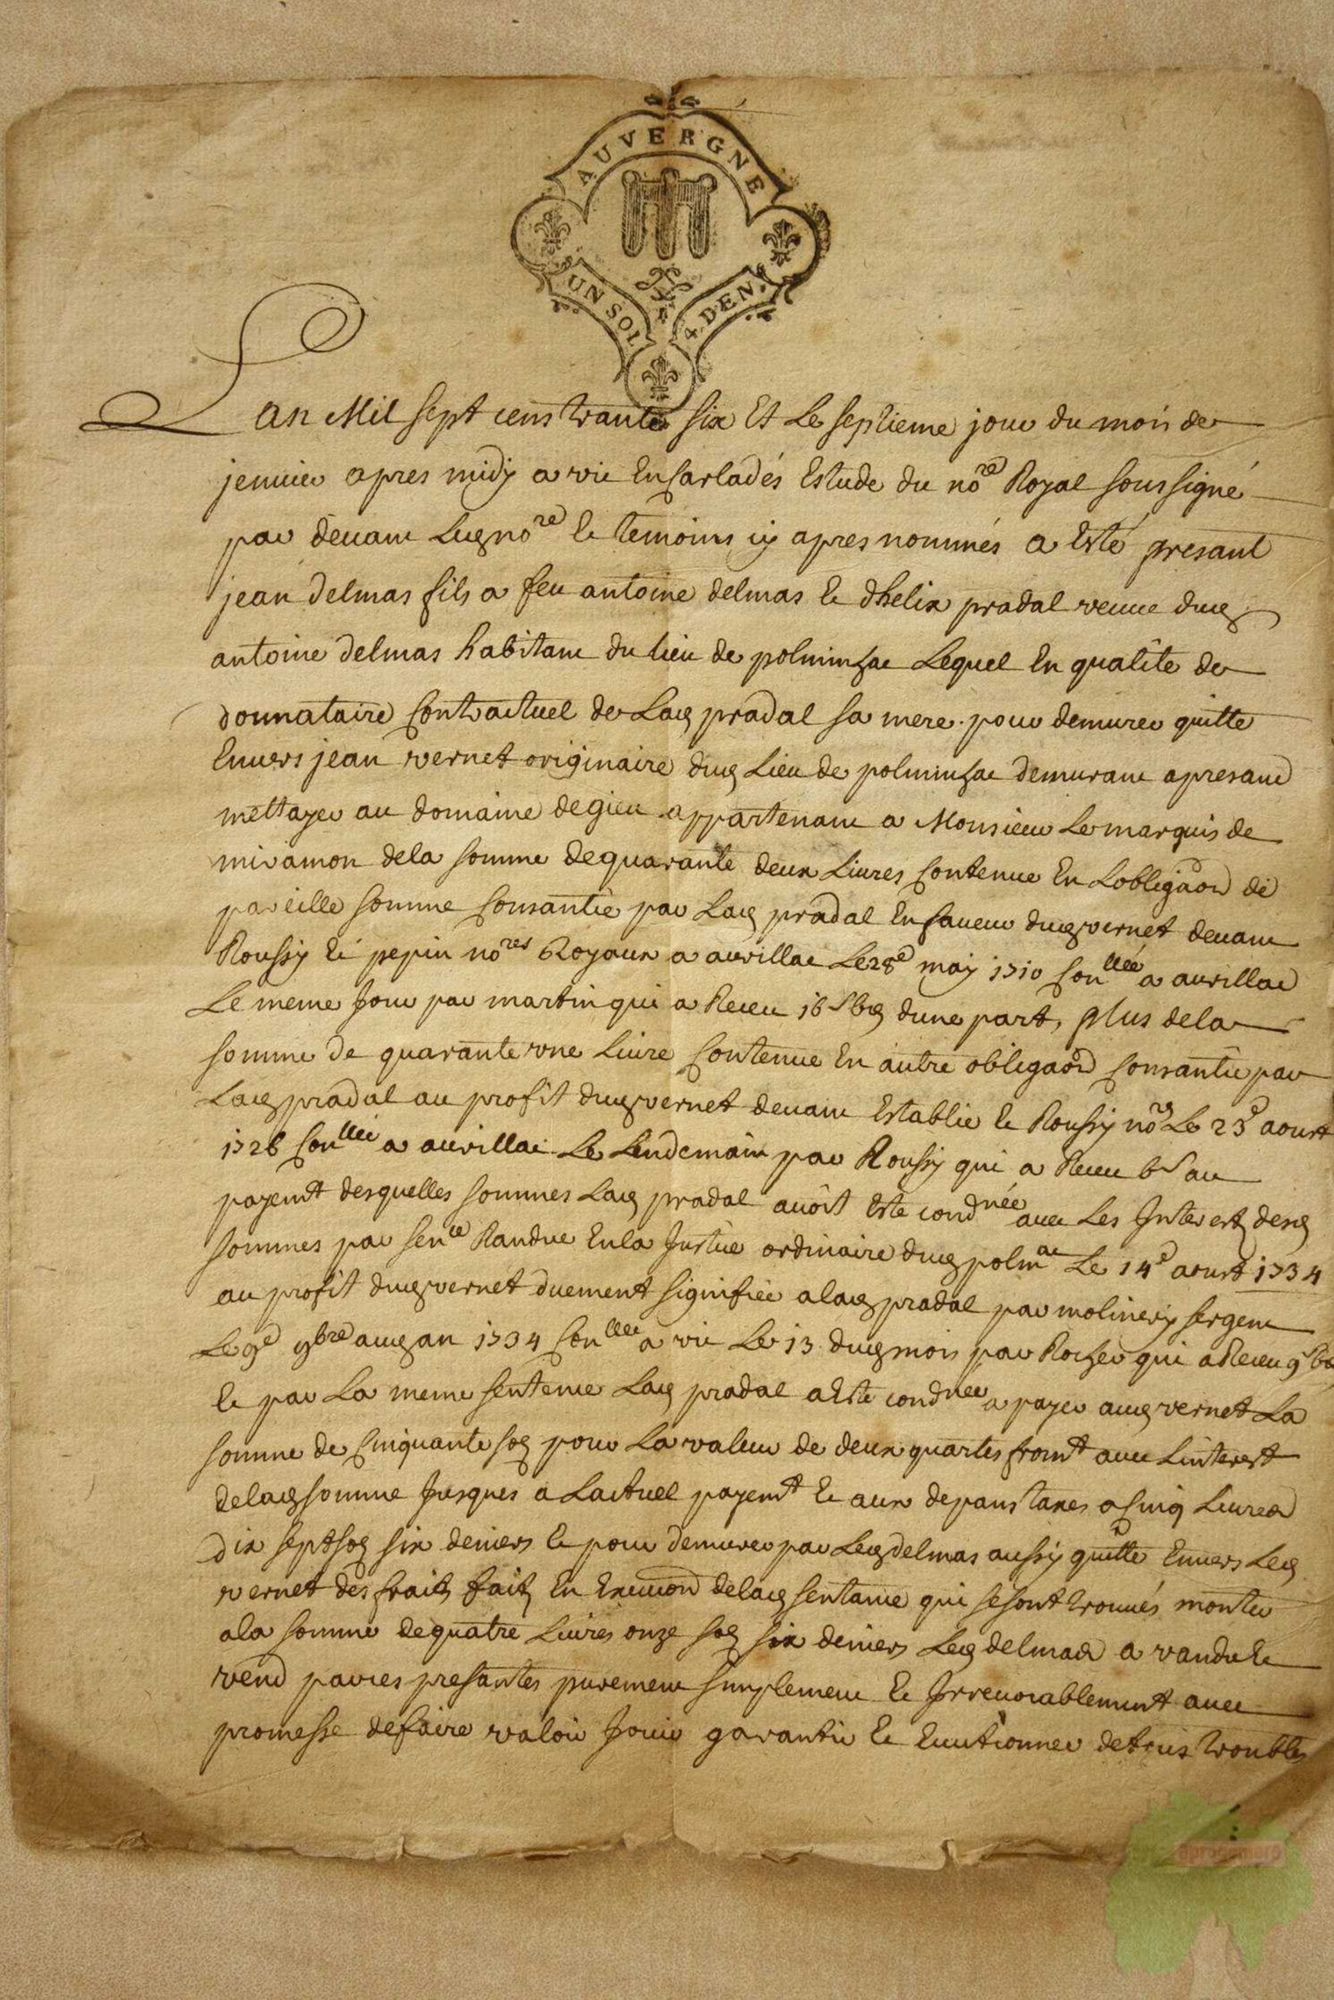 AUVERGNE
UN SOL 4 DEN.
Lan Mil sept cens trante six Et Le septieme jour du mois de
jenvier apres midy a vic En Carladés Estude du no.re Royal soussigné
par devant Led no.re Et temoins cy apres nommés a Esté presant
jean delmas fils a feu antoine delmas Et dhelix pradal veuve dud
antoine delmas habitant du lieu de polminhac Lequel En qualité de
donnataire Contractuel de Lad pradal sa mere pour demurer quitte
Envers jean vernet originaire dud Lieu de polminhac demurant apresant
mettayer au domaine de gieu appartenant a Monsieur Le marquis de
miramon dela somme de quarante deux Livres Contenue En Lobligaon de
pareille somme Consantie par Lad pradal En faveur dud vernet devant
Roussy Et pepin no.res Royaux a aurillac Le 28e may 1710 Con.llée a aurillac
Le meme Jour par martin qui a Receu 16 s 6d dune part, plus dela
somme de quarante une Livre Contenue En autre obligaon Consantie par
Lad pradal au profit dud vernet devant Establie Et Roussy no.res Le 23e aoust
1726 Con.llée a aurillac Le Lendemain par Roussy qui a Receu 6s au
payem.t desquelles sommes Lad pradal avoit Esté cond.née avec Les Interetz desd
sommes par sen.ce Randue En la Justice ordinaire dud polm.ac Le 14e aoust 1734
au profit dud vernet duement signifiée a lad pradal par molinery sergent
Le 9e 9bre aud an 1734 Con.llée a vic Le 13 dud mois par Rochet qui a Receu 9s 6d
Et par La meme sentence Lad pradal a Esté cond.née a payer aud vernet La
somme de Cinquante sos pour La valeur de deux quartes from.t avec Linterest
delad somme Jusques a Lactuel payem.t Et aux depans taxés a Cinq Livres
dix sept sos six deniers Et pour demurer par Led delmas aussy quitte Envers Led
vernet des fraitz faitz En Execuon delad sentance qui se sont trouvés monter
a la somme de quatre Livres onze sos six deniers Led delmas a vandu Et
vend par ces presantes purement simplement Et Irrevocablement avec
promesse de faire valoir Jouir garantir Et Evictionner de tous troubles